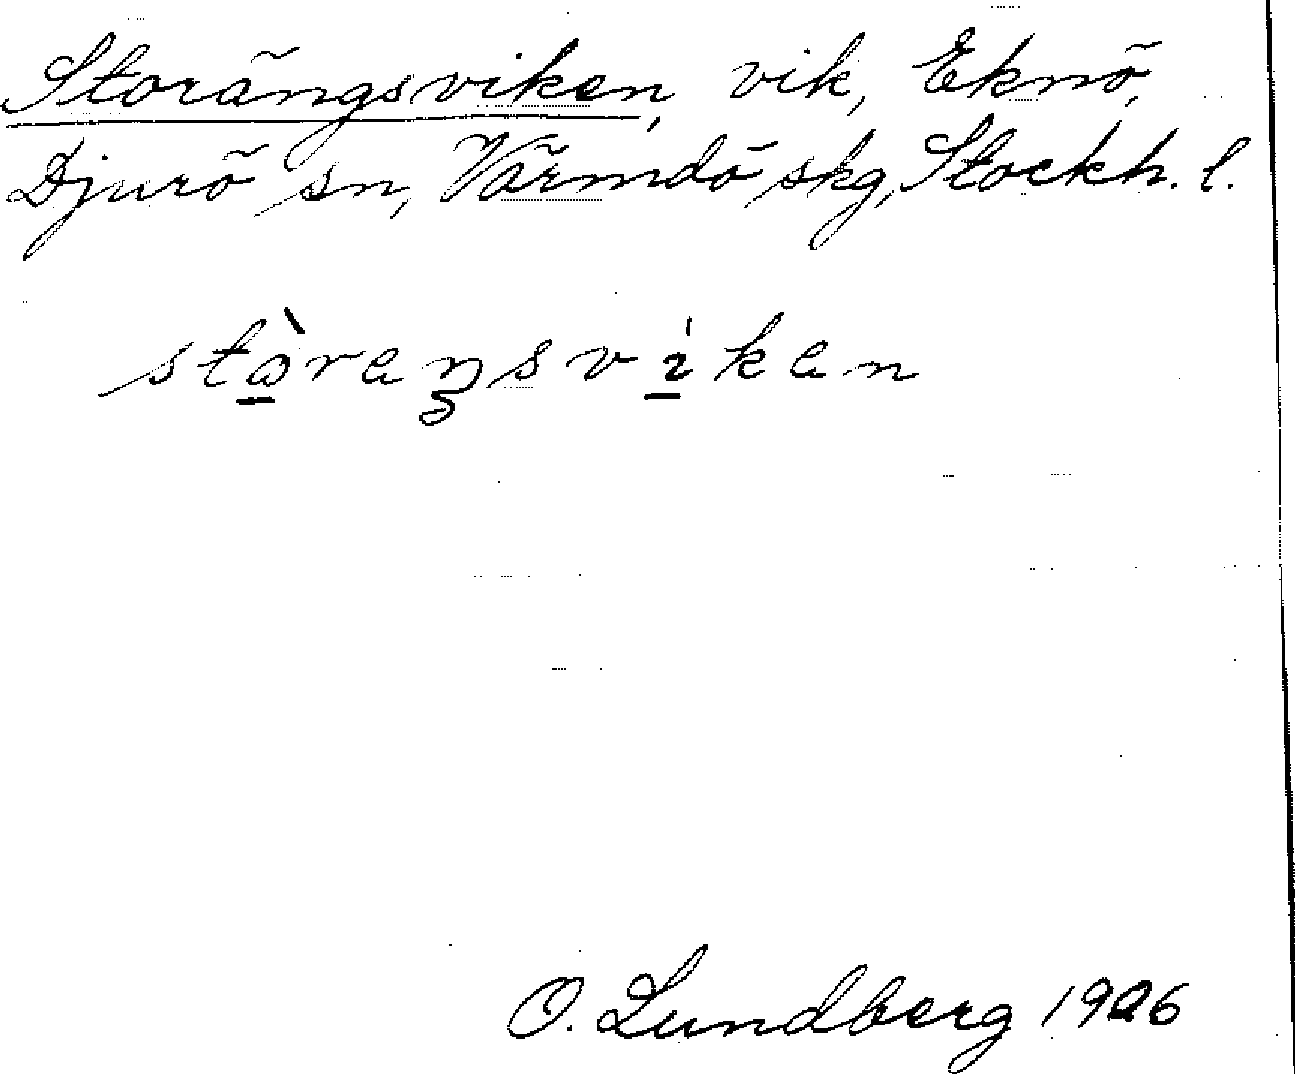 Storängsviken, vik, Eknö,
Djurö sn, Värmdö skg, Stockh. l.
stòreŋsvíken
O. Lundberg 1926